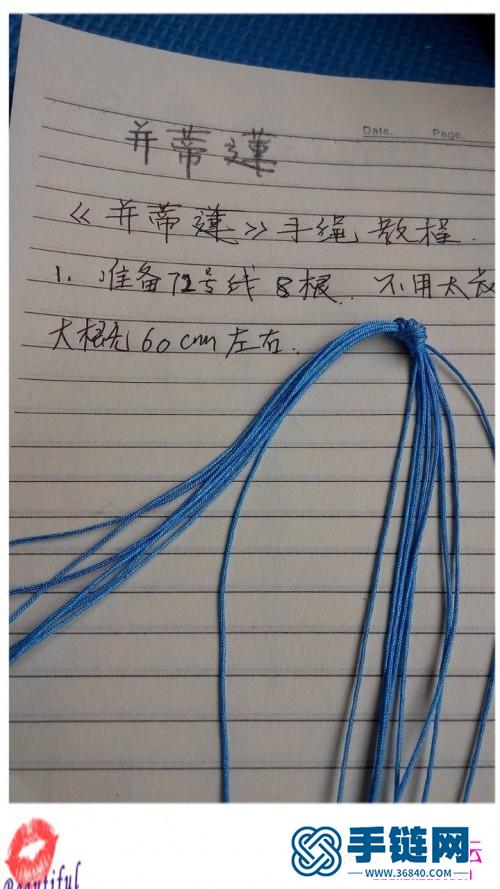 Date. Page.
并蒂莲
《并蒂莲》手绳教程.
1. 准备72号线8根. 不用太长
大概先60cm左右.
云
手链网
www.36840.com
Beautiful